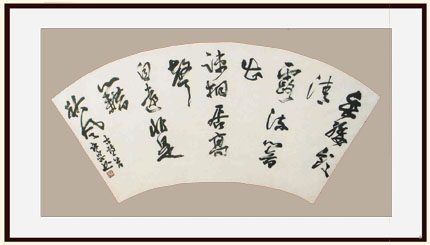 垂緌飲
清
露流響
出
疎桐居高
聲
自遠非是
藉
秋風